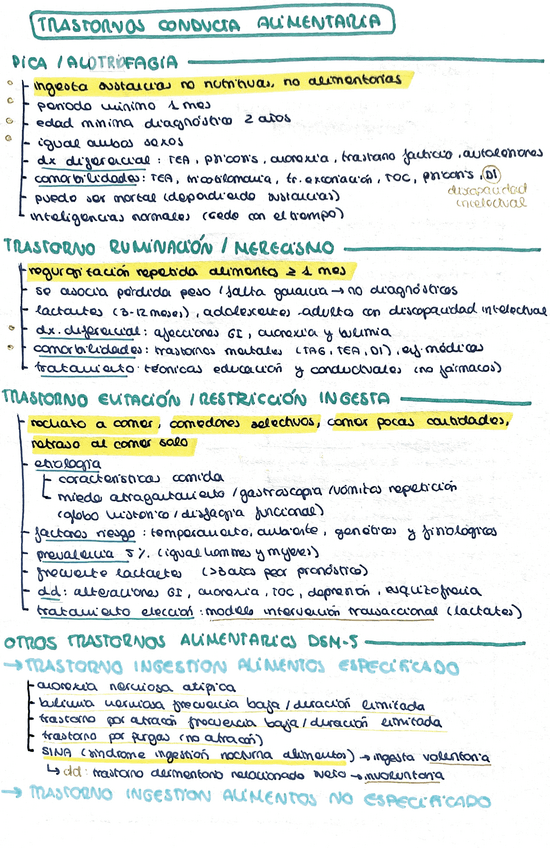 TRASTORNOS CONDUCTA ALIMENTARIA
PICA / ALOTRIOFAGIA
ingesta sustancias no nutritivas, no alimentarias
periodo mínimo 1 mes
edad mínima diagnóstico 2 años
igual ambos sexos
dx diferencial: TEA, psicosis, anorexia, trastorno facticio, autolesiones
comorbilidades: TEA, tricotilomanía, tr. excoriación, TOC, psicosis, DI
discapacidad
intelectual
puede ser mortal (dependiendo sustancias)
inteligencias normales (cede con el tiempo)
TRASTORNO RUMINACIÓN / MERECISMO
regurgitación repetida alimentos ≥ 1 mes
se asocia pérdida peso / falta ganancia → no diagnósticos
lactantes (3-12 meses), adolescentes-adulto con discapacidad intelectual
dx. diferencial: afecciones GI, anorexia y bulimia
comorbilidades: trastornos mentales (TAG, TEA, DI), enf. médicas
tratamiento: técnicas educación y conductuales (no fármacos)
TRASTORNO EVITACIÓN / RESTRICCIÓN INGESTA
rechazo a comer, comedores selectivos, comer pocas cantidades,
retraso al comer solo
etiología
características comida
miedo atragantamiento / gastroscopia / vómitos repetición
(globo histérico / disfagia funcional)
factores riesgo: temperamento, ambiente, genéticos y fisiológicos
prevalencia 5% (igual hombres y mujeres)
frecuente lactantes (>3 años peor pronóstico)
dd: alteraciones GI, anorexia, TOC, depresión, esquizofrenia
tratamiento elección: modelo intervención transaccional (lactates)
OTROS TRASTORNOS ALIMENTARIOS DSM-5
→ TRASTORNO INGESTION ALIMENTOS ESPECIFICADO
anorexia nerviosa atípica
bulimia nerviosa frecuencia baja / duración limitada
trastorno por atracón frecuencia baja / duración limitada
trastorno por purgas (no atracón)
SINA (síndrome ingestión nocturna alimentos) → ingesta voluntaria
↳ dd: trastorno alimentario relacionado sueño → involuntaria
→ TRASTORNO INGESTION ALIMENTOS NO ESPECIFICADO